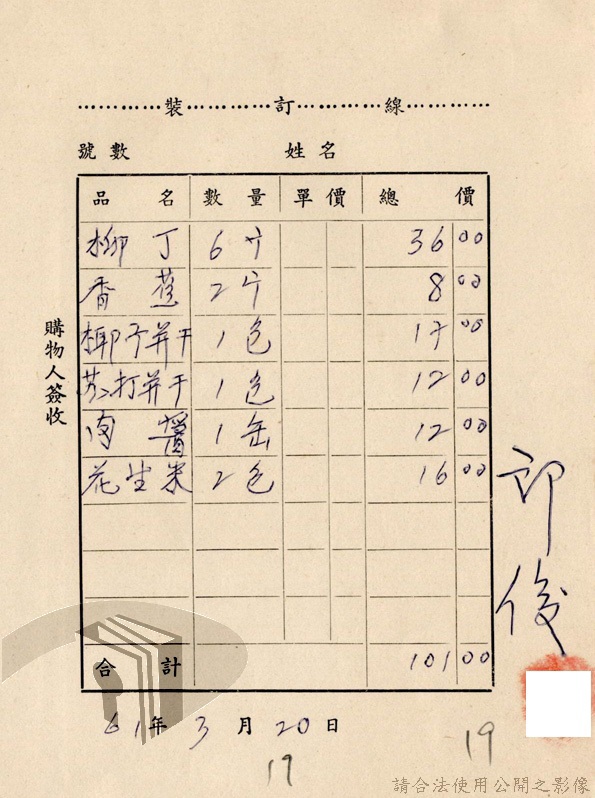 裝訂線
號數 姓名
品名 數量 單價 總價
柳丁 6斤 36 00
香蕉 2斤 8 00
椰子并干 1包 17 00
苏打并干 1包 12 00
肉醬 1缶 12 00
花生米 2包 16 00
合計 101 00
購物人簽收
61年3月20日
19
19
請合法使用公開之影像